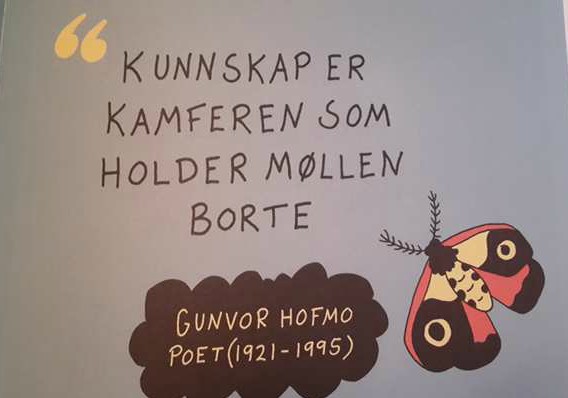 “ KUNNSKAP ER
KAMFEREN SOM
HOLDER MØLLEN
BORTE
GUNVOR HOFMO
POET (1921-1995)